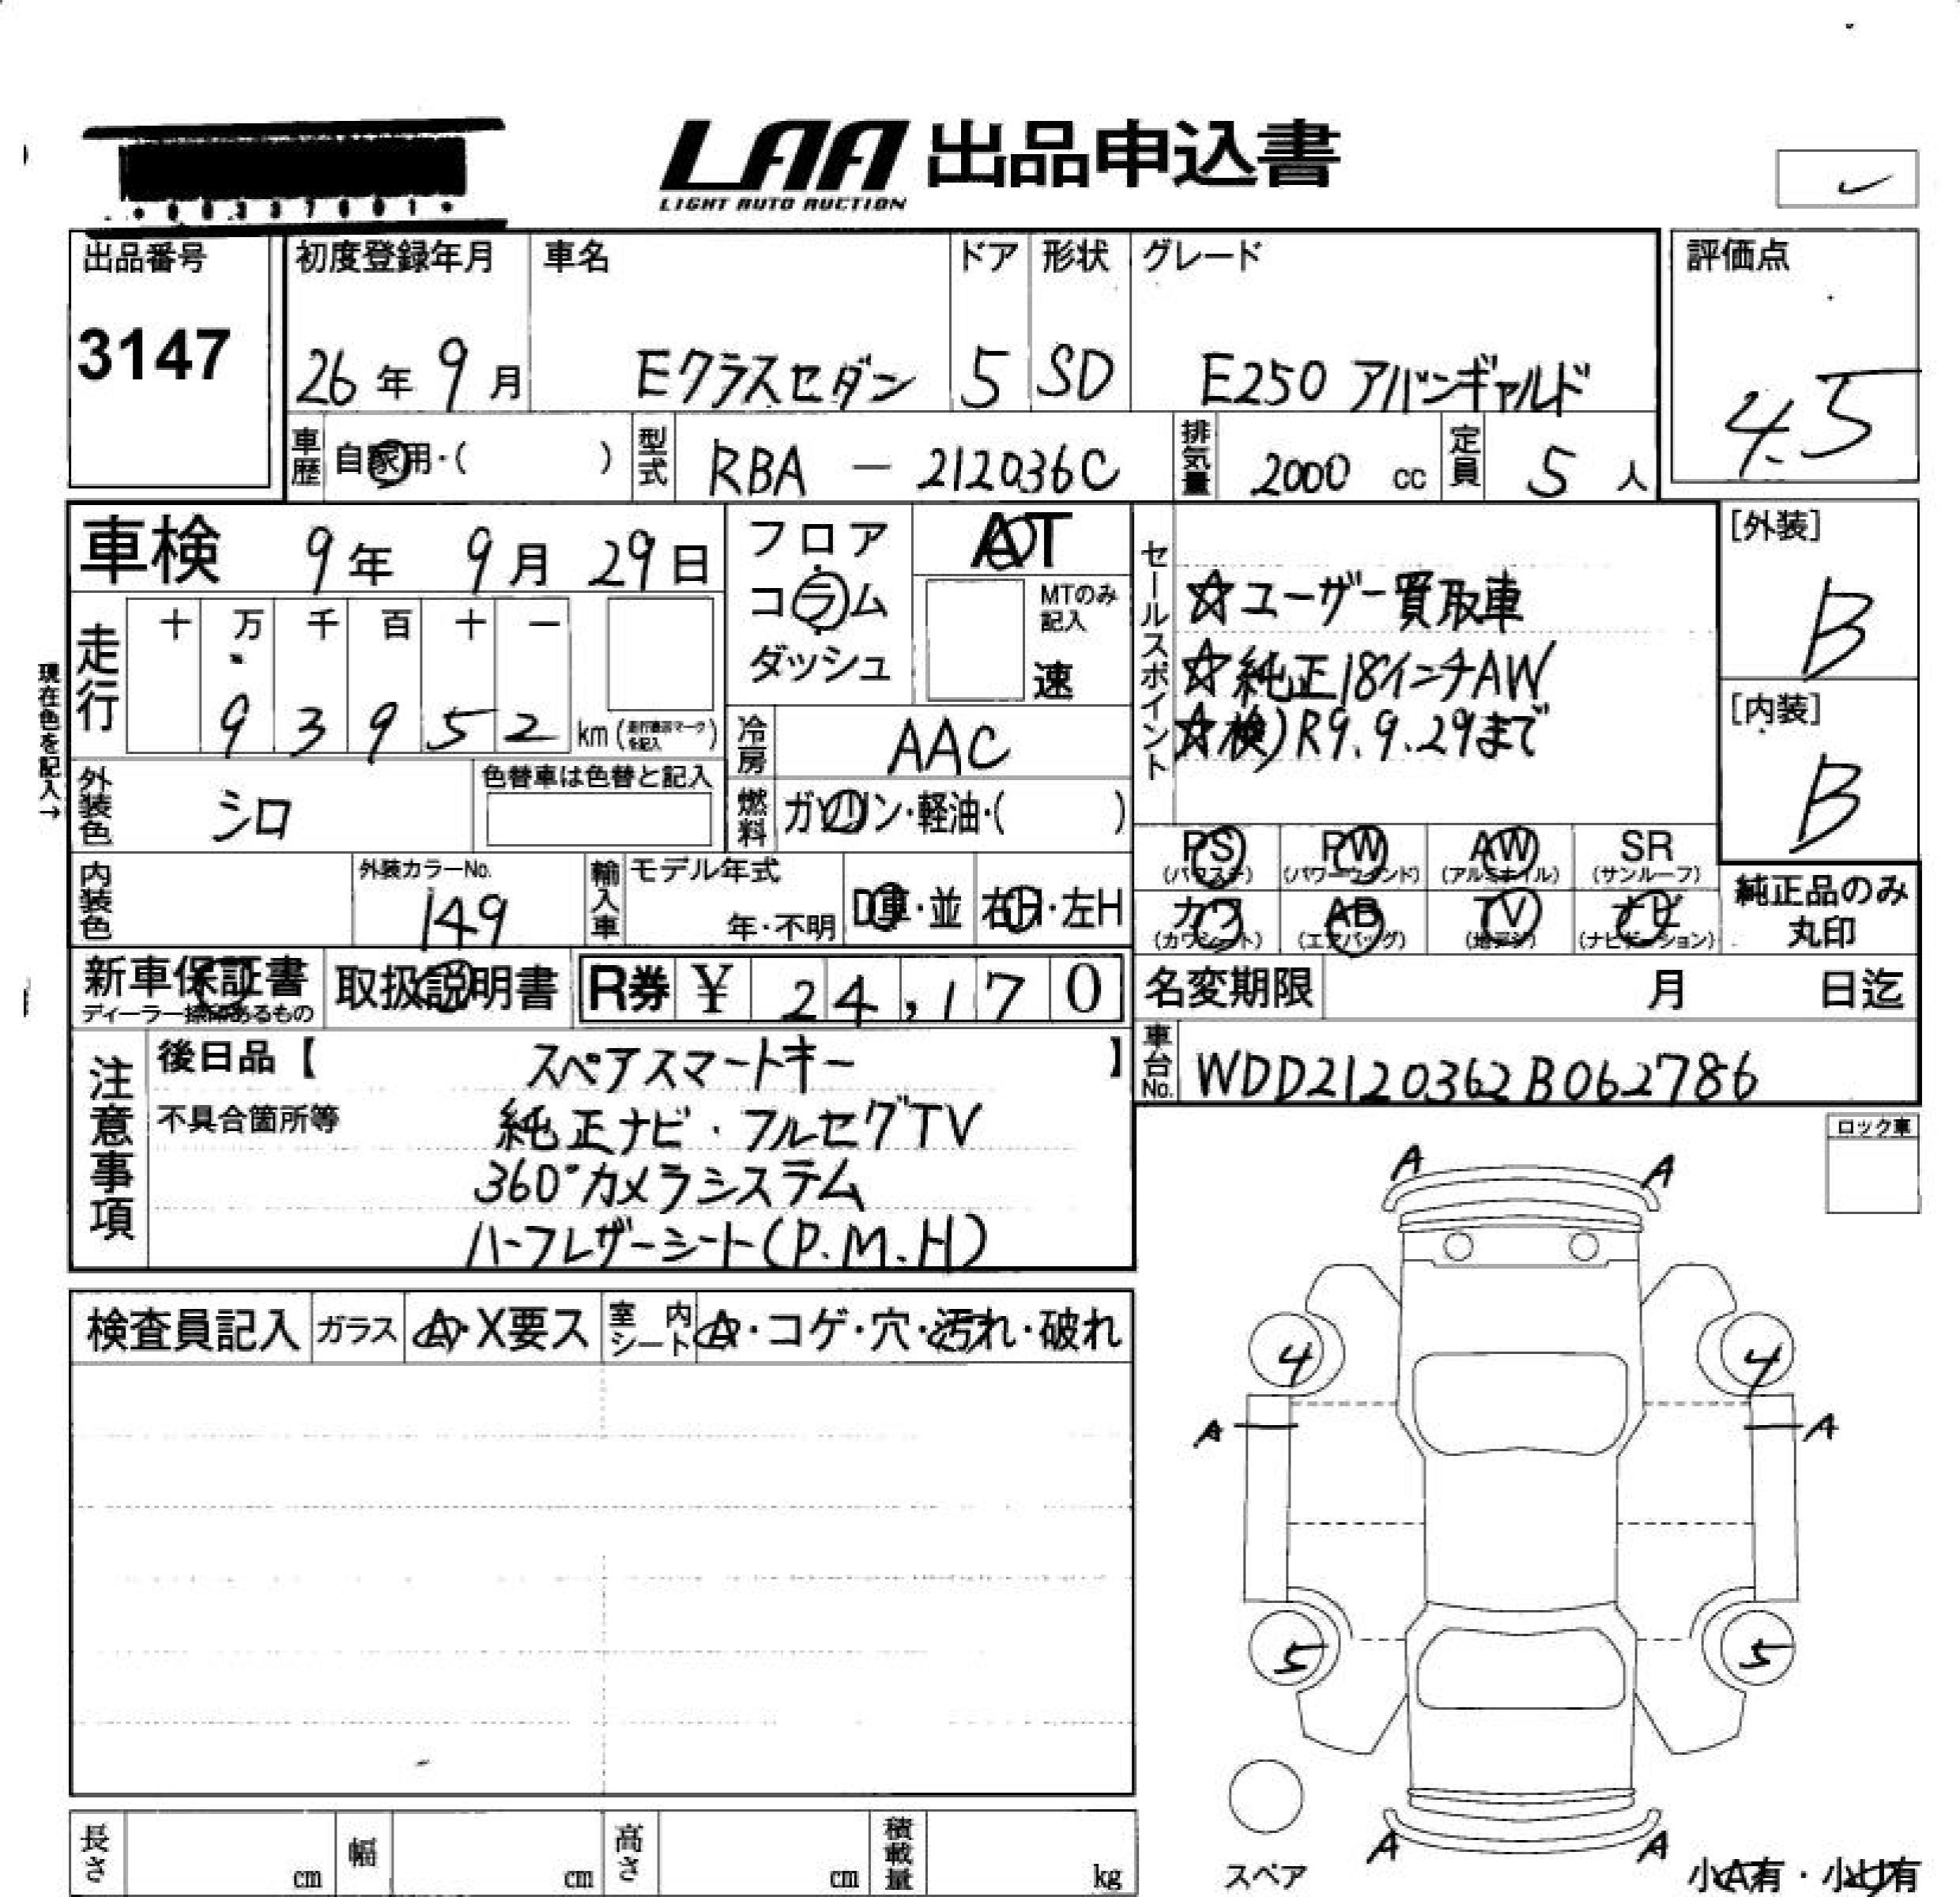 LAA 出品申込書
LIGHT AUTO AUCTION
出品番号 初度登録年月 車名 ドア 形状 グレード 評価点
3147 26年 9月 Eクラスセダン 5 SD E250 アバンギャルド 4.5
車歴 自家用・( ) 型式 RBA - 212036C 排気量 2000 cc 定員 5 人
車検 9年 9月 29日
フロア
コラム
ダッシュ
AT
MTのみ記入
速
セールスポイント
☆ユーザー買取車
☆純正18インチAW
☆検)R9.9.29まで
[外装]
B
[内装]
B
現在色を記入→
走行 十 万 千 百 十 一
9 3 9 5 2 km
冷房 AAC
燃料 ガソリン・軽油・( )
外装色 シロ 色替車は色替と記入
内装色 外装カラーNo. 149 輸入車 モデル年式 年・不明 D車・並 右H・左H
PS (パワステ) PW (パワーウインド) AW (アルミホイル) SR (サンルーフ)
カワ (カワシート) AB (エアバッグ) TV (地デジ) ナビ (ナビゲーション)
純正品のみ
丸印
新車保証書 取扱説明書 R券 ¥ 24,170 名変期限 月 日迄
車台No. WDD2120362B062786
注意事項
後日品【 スペアスマートキー 】
不具合箇所等 純正ナビ・フルセグTV
360°カメラシステム
ハーフレザーシート(P.M.H)
ロック車
検査員記入 ガラス A・X要ス 室内シート A・コゲ・穴・汚れ・破れ
A A
4 4
A A
5 5
A A
スペア
小A有・小U有
長さ cm 幅 cm 高さ cm 積載量 kg